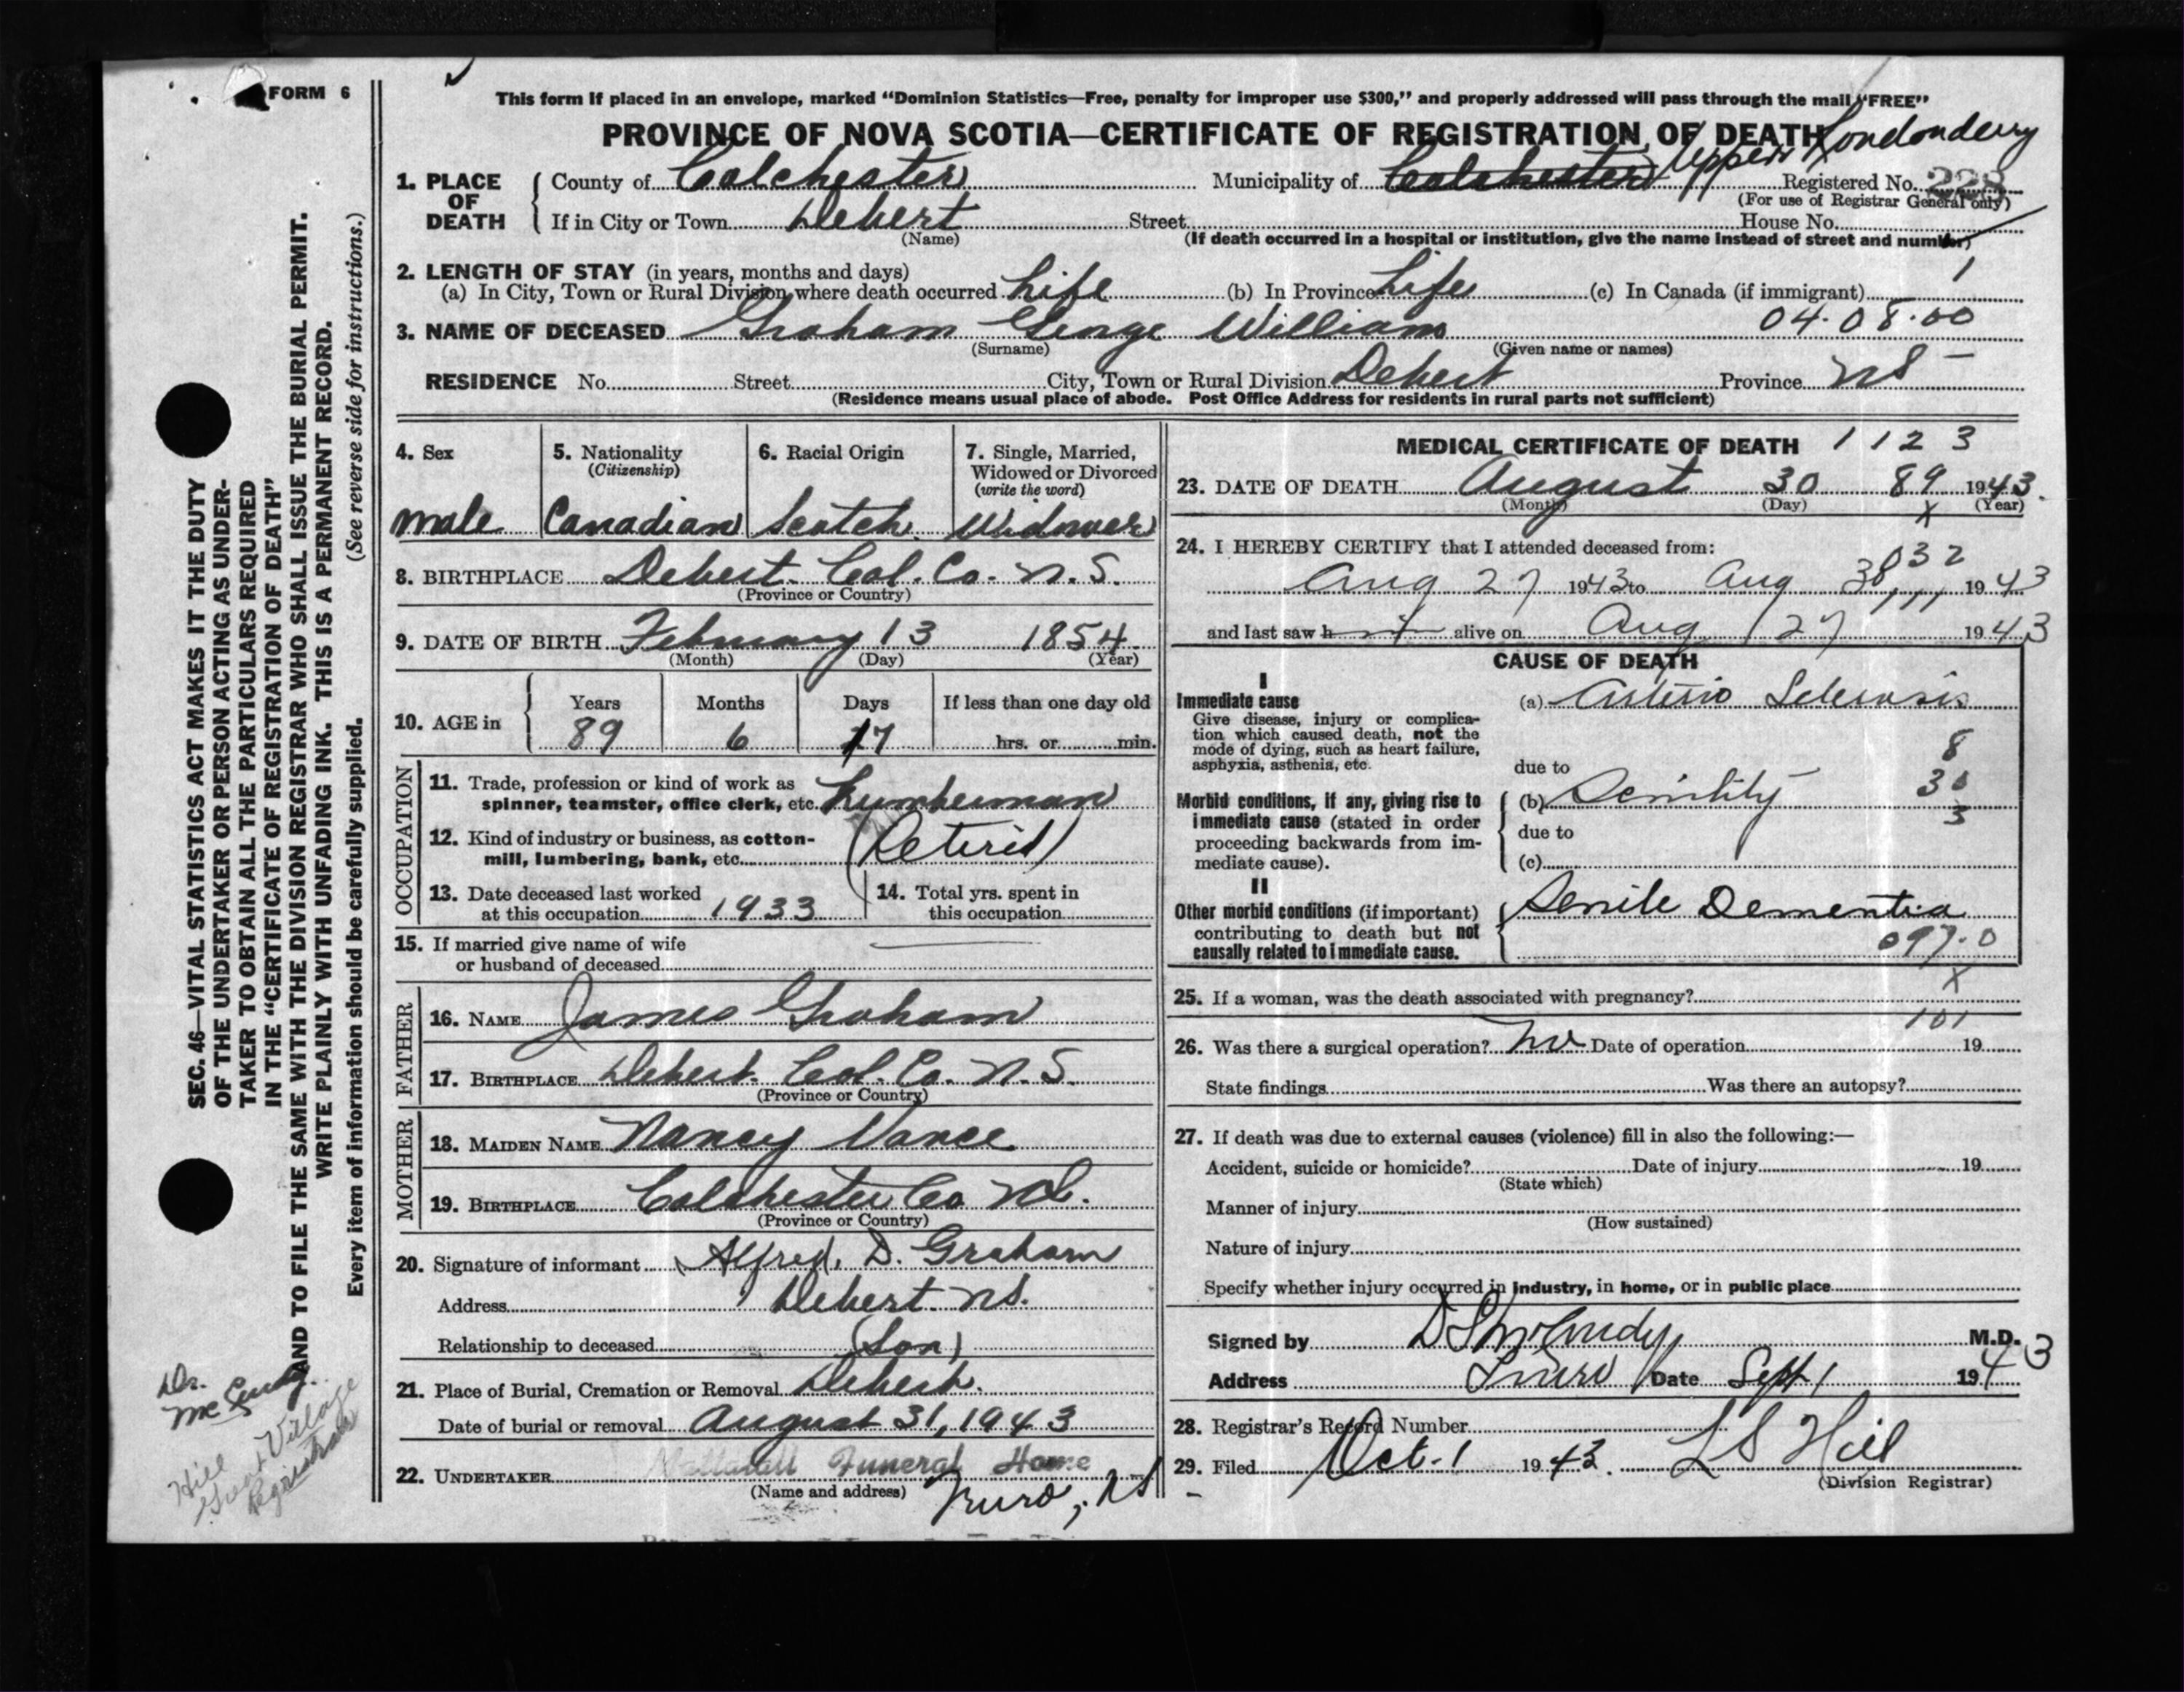 FORM 6
This form if placed in an envelope, marked "Dominion Statistics—Free, penalty for improper use $300," and properly addressed will pass through the mail "FREE"
PROVINCE OF NOVA SCOTIA—CERTIFICATE OF REGISTRATION OF DEATH
Upper Londonderry
1. PLACE OF DEATH
County of Colchester Municipality of Colchester Registered No. 228
(For use of Registrar General only)
If in City or Town Debert Street House No.
(Name) (If death occurred in a hospital or institution, give the name instead of street and number)
2. LENGTH OF STAY (in years, months and days) 1
(a) In City, Town or Rural Division where death occurred Life (b) In Province Life (c) In Canada (if immigrant)
04.08.00
3. NAME OF DECEASED Graham George William
(Surname) (Given name or names)
RESIDENCE No. Street City, Town or Rural Division Debert Province NS
(Residence means usual place of abode. Post Office Address for residents in rural parts not sufficient)
4. Sex
male
5. Nationality
(Citizenship)
Canadian
6. Racial Origin
Scotch
7. Single, Married,
Widowed or Divorced
(write the word)
Widower
8. BIRTHPLACE Debert Col. Co. N.S.
(Province or Country)
9. DATE OF BIRTH February 13 1854
(Month) (Day) (Year)
10. AGE in Years Months Days If less than one day old
89 6 17 hrs. or min.
OCCUPATION
11. Trade, profession or kind of work as
spinner, teamster, office clerk, etc. Lumberman
12. Kind of industry or business, as cotton-
mill, lumbering, bank, etc. (Retired)
13. Date deceased last worked
at this occupation 1933
14. Total yrs. spent in
this occupation
15. If married give name of wife
or husband of deceased
FATHER
16. NAME James Graham
17. BIRTHPLACE Debert Col. Co. N.S.
(Province or Country)
MOTHER
18. MAIDEN NAME Nancy Vance
19. BIRTHPLACE Colchester Co NS.
(Province or Country)
20. Signature of informant Alfred D. Graham
Address Debert NS.
Relationship to deceased (Son)
21. Place of Burial, Cremation or Removal Debert.
Date of burial or removal August 31, 1943
22. UNDERTAKER Funeral Home
(Name and address) Truro, NS
MEDICAL CERTIFICATE OF DEATH 1123
23. DATE OF DEATH August 30 89 1943.
(Month) (Day) x (Year)
24. I HEREBY CERTIFY that I attended deceased from:
032
Aug 27 1943 to Aug 30 1943
and last saw h alive on Aug 27 1943
CAUSE OF DEATH
I
Immediate cause
Give disease, injury or complica-
tion which caused death, not the
mode of dying, such as heart failure,
asphyxia, asthenia, etc.
(a) Arterio Sclerosis
8
due to
30
Morbid conditions, if any, giving rise to
immediate cause (stated in order
proceeding backwards from im-
mediate cause).
(b) Senility
3
due to
(c)
II
Other morbid conditions (if important)
contributing to death but not
causally related to immediate cause.
Senile Dementia
097.0
x
25. If a woman, was the death associated with pregnancy?
101
26. Was there a surgical operation? No Date of operation 19
State findings Was there an autopsy?
27. If death was due to external causes (violence) fill in also the following:—
Accident, suicide or homicide? Date of injury 19
(State which)
Manner of injury
(How sustained)
Nature of injury
Specify whether injury occurred in industry, in home, or in public place
Signed by M.D.
Address Truro Date Sept 1 1943
28. Registrar's Record Number
29. Filed Oct. 1 1943. LS Hill
(Division Registrar)
SEC. 46—VITAL STATISTICS ACT MAKES IT THE DUTY
OF THE UNDERTAKER OR PERSON ACTING AS UNDER-
TAKER TO OBTAIN ALL THE PARTICULARS REQUIRED
IN THE "CERTIFICATE OF REGISTRATION OF DEATH"
AND TO FILE THE SAME WITH THE DIVISION REGISTRAR WHO SHALL ISSUE THE BURIAL PERMIT.
WRITE PLAINLY WITH UNFADING INK. THIS IS A PERMANENT RECORD.
Every item of information should be carefully supplied. (See reverse side for instructions.)
Dr.
Hill
Great Village
Registrar